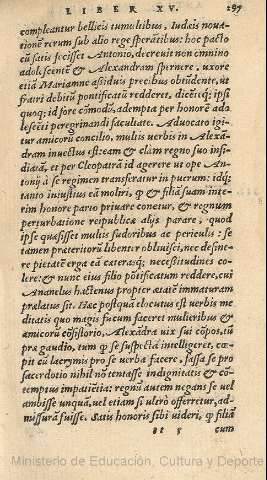 LIBER XV. 297
compleantur bellicis tumultibus, Iudæis noua-
tionē rerum sub alio rege sperātibus: hoc pacto
cū satis fecisset Antonio, decreuit non omnino
adolescentē & Alexandram spernere, uxore
etiā Mariamne assiduis precibus obtūdente, ut
fratri debitū pontificatū redderet, dicētcꝗ; ipsi
quoꝗ; id fore cōmodū, adempta per honorē ado
lescēti peregrinandi facultate. Aduocato igi-
tur amicorū concilio, multis uerbis in Alexā-
dram inuectus est: eam & clam regno suo insi-
diatā, et per Cleopatrā id agerere ut ope An-
tonij à se regimen transferatur in puerum: idꝗ;
tanto iniustius eā moliri, ꝙ & filiā suam inte-
rim honore parto priuare conetur, & regnum
perturbatione reipublicæ alijs parare, quod
ipse quæsisset multis sudoribus ac periculis: se
tamen præteritorū libenter obliuisci, nec desine-
re pietatē erga eā cæterasꝗ; necessitudines co-
lere: & nunc eius filio pōtificatum reddere, cui
Ananelus hactenus propter ætatē immaturam
prælatus sit. Hæc postquā elocutus est uerbis me
ditatis quo magis fucum faceret mulieribus &
amicorū cōsistorio, Alexādra uix sui cōpos, tū
præ gaudio, tum ꝙ se suspectā intelligeret, cœ-
pit cū lacrymis pro se uerba facere, fassa se pro
sacerdotio nihil nō tentasse indignitatis & cō-
temptus impatiētia: regnū autem negans se uel
ambisse unquā, uel etiam si ulerò offerretur, ad-
missurā fuisse. Satis honoris sibi uideri, ꝙ filiā
st 5 cum
Ministerio de Educación, Cultura y Deporte